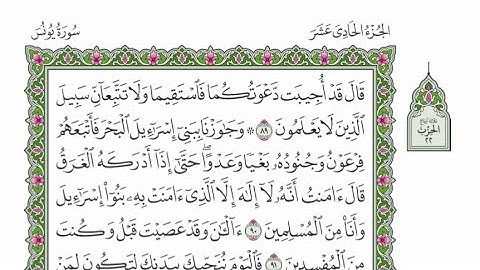 سُورَةُ يُونُسَ
الجُزْءُ الحَادِىَ عَشَرَ
قَالَ قَدْ أُجِيبَت دَّعْوَتُكُمَا فَٱسْتَقِيمَا وَلَا تَتَّبِعَآنِّ سَبِيلَ
ٱلَّذِينَ لَا يَعْلَمُونَ ٨٩ ۞ وَجَٰوَزْنَا بِبَنِىٓ إِسْرَٰٓءِيلَ ٱلْبَحْرَ فَأَتْبَعَهُمْ
فِرْعَوْنُ وَجُنُودُهُۥ بَغْيًا وَعَدْوًا ۖ حَتَّىٰٓ إِذَآ أَدْرَكَهُ ٱلْغَرَقُ
قَالَ ءَامَنتُ أَنَّهُۥ لَآ إِلَٰهَ إِلَّا ٱلَّذِىٓ ءَامَنَتْ بِهِۦ بَنُوٓا۟ إِسْرَٰٓءِيلَ
وَأَنَا۠ مِنَ ٱلْمُسْلِمِينَ ٩٠ ءَآلْـَٰٔنَ وَقَدْ عَصَيْتَ قَبْلُ وَكُنتَ
مِنَ ٱلْمُفْسِدِينَ ٩١ فَٱلْيَوْمَ نُنَجِّيكَ بِبَدَنِكَ لِتَكُونَ لِمَنْ
الحِزْبِ
٢٢